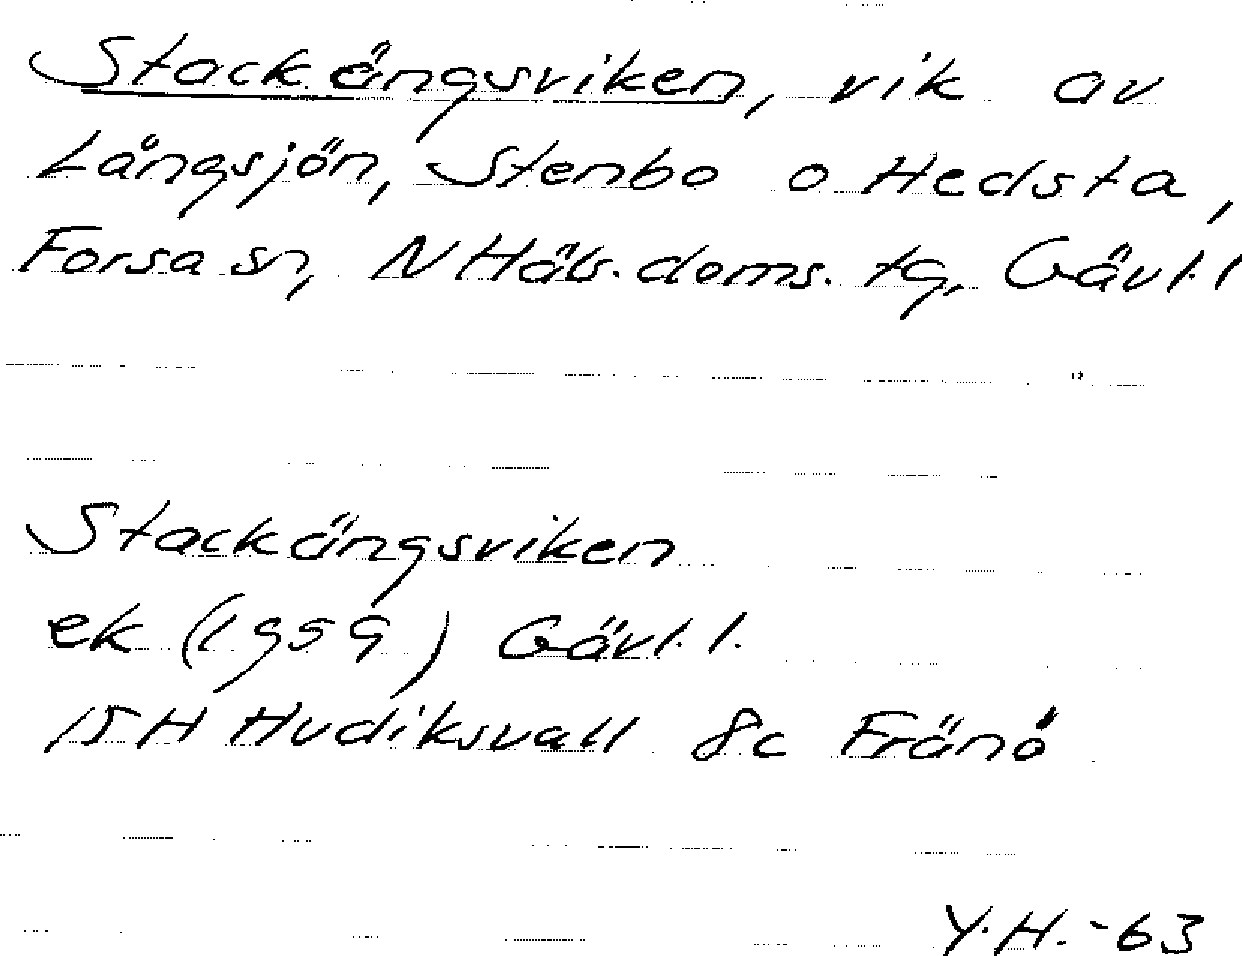 Stackängsviken, vik av
Långsjön, Stenbo o Hedsta,
Forsa sn, N Häls. doms. tg, Gävl. l
Stackängsviken
ek (1959) Gävl. l.
15H Hudiksvall 8c Fränö
Y.H. -63